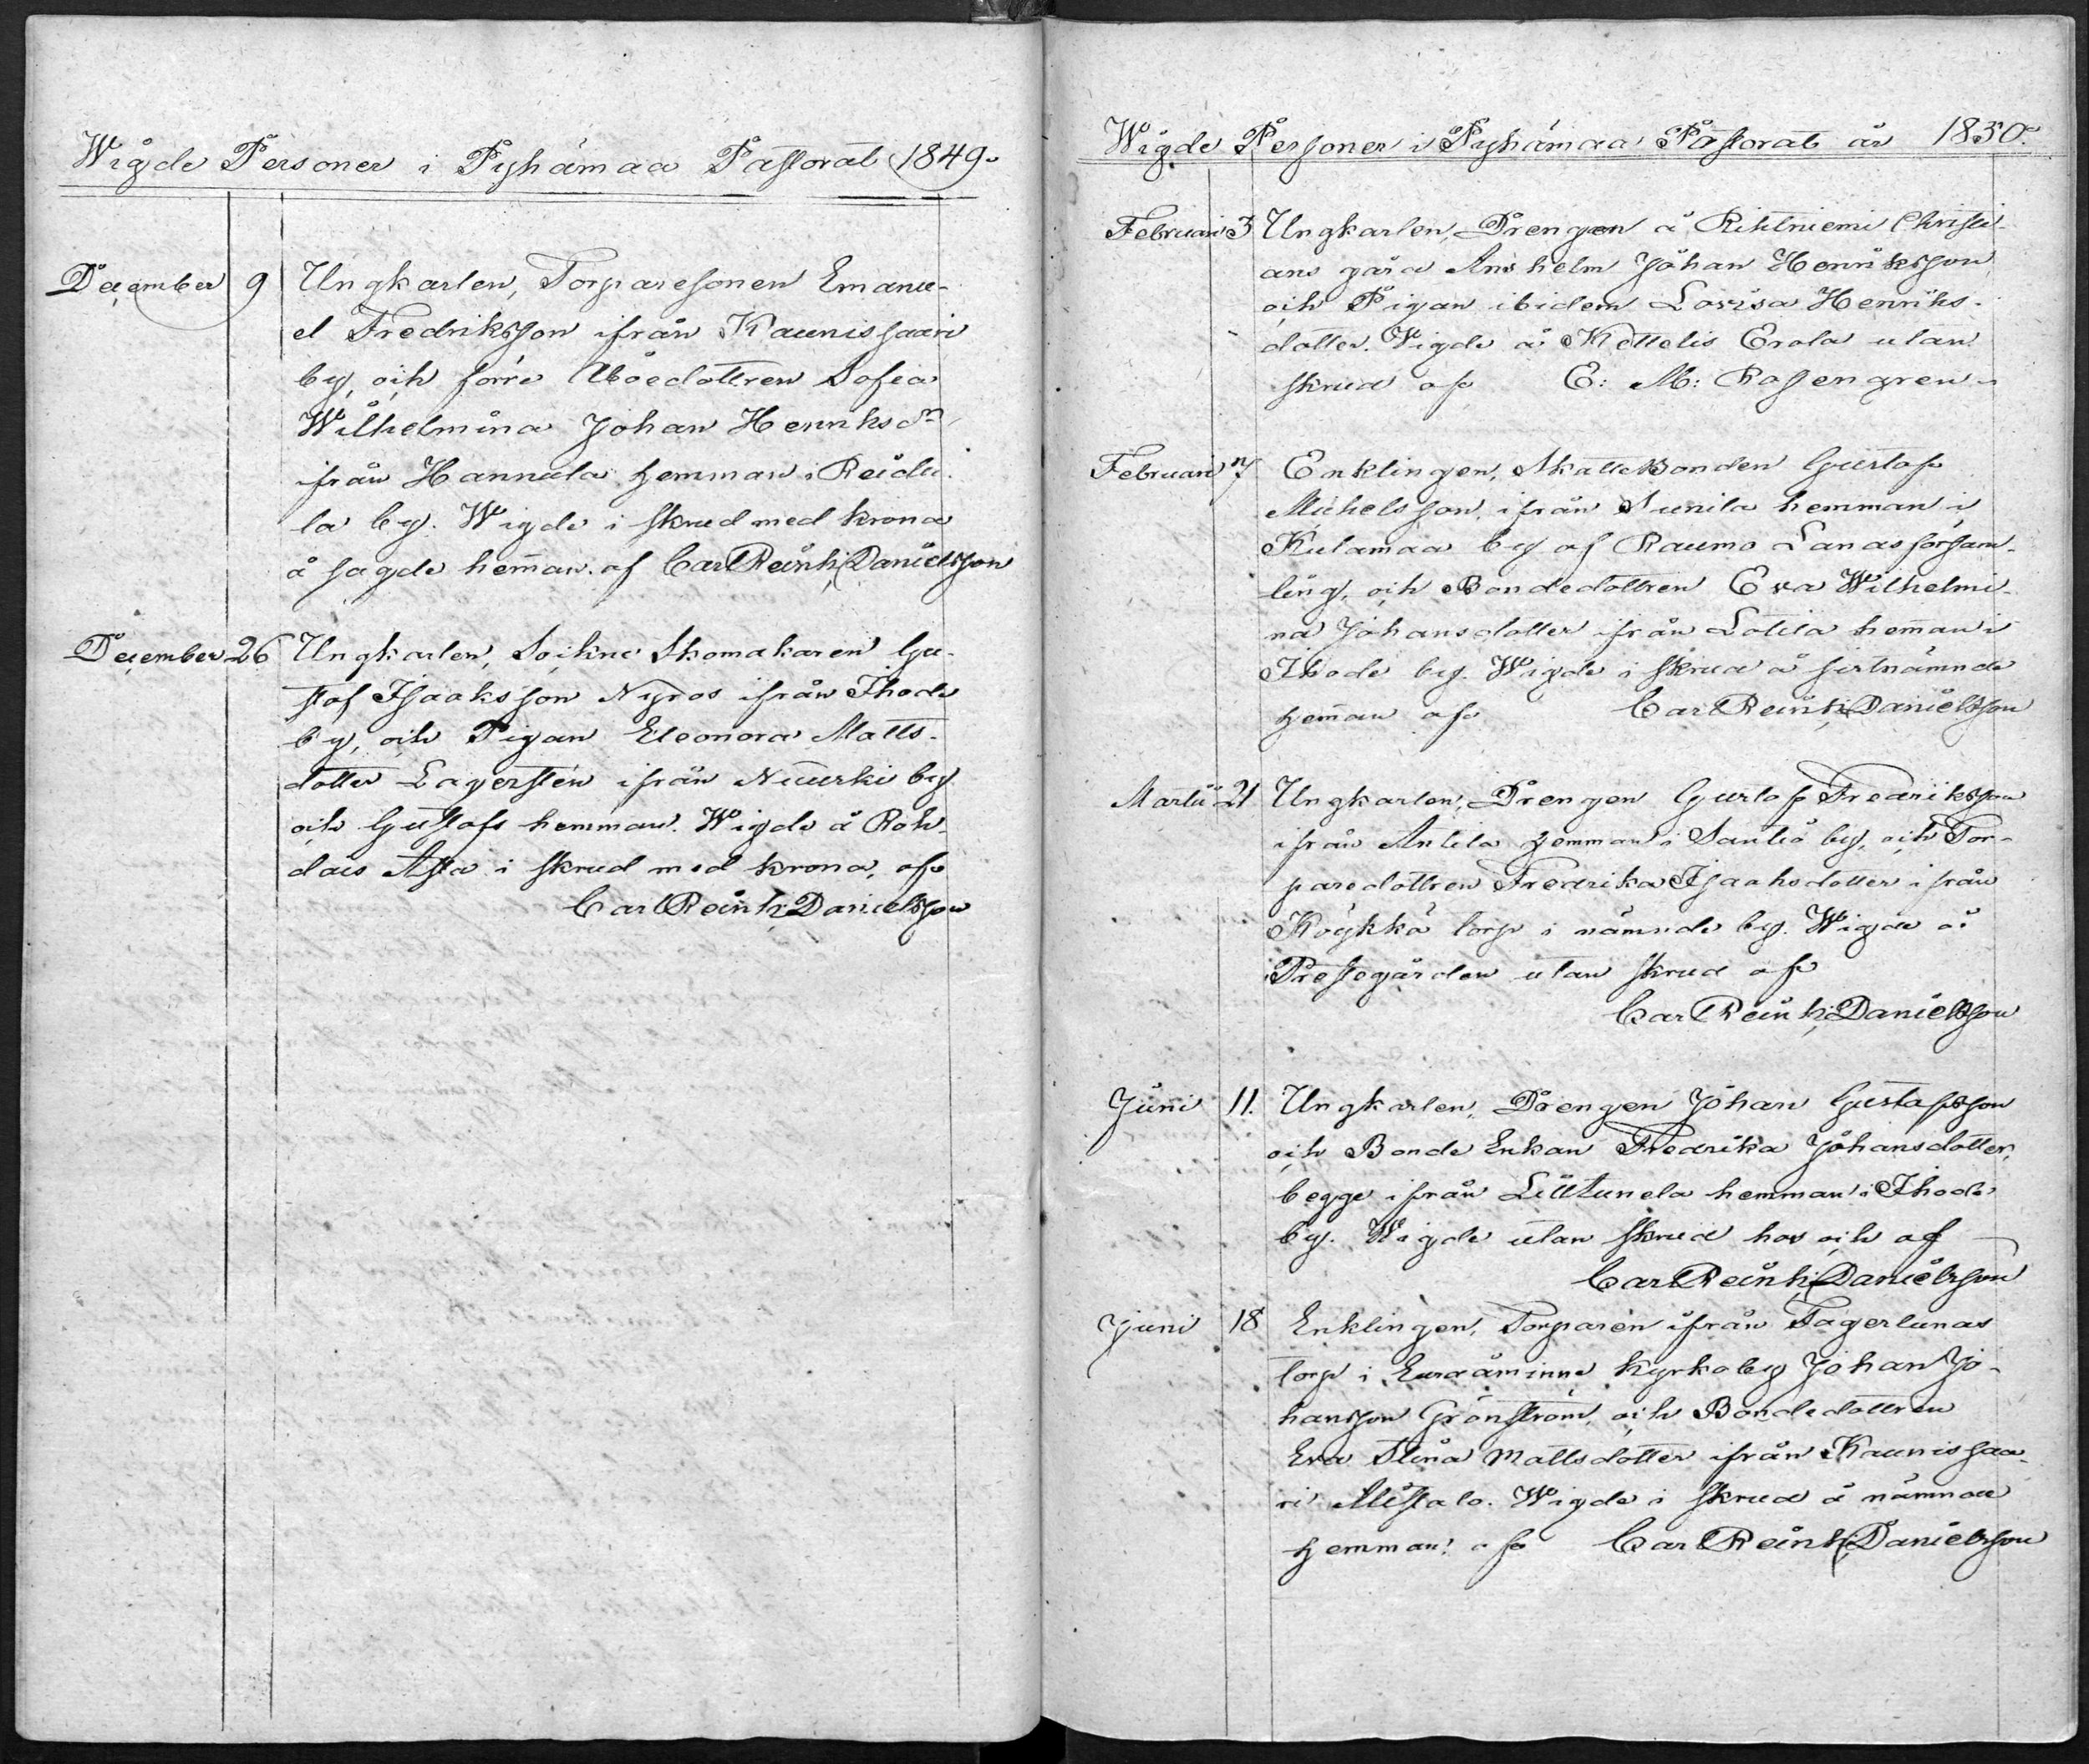 Wigde Personer i Pyhämaa Pastorat 1849.
December 9 Ungkarlen, Torparesonen Emanu-
el Fredriksson ifrån Kaunissaari
by, och förre Åboedottren Sofia
Wilhelmina Johan Henriksdr
ifrån Hannula hemman i Reidi-
la by. Wigde i skrud med krona
å sagde hem̄an. af Carl Reinh: Danielsson
December 26 Ungkarlen, Sockne Skomakaren Gu-
staf Isaaksson Nyros ifrån Ihode
by, och Pigan Eleonora Matts-
dotter Lagersten ifrån Nuurki by
och Gustafs hemman. Wigde å Roh-
dais Asta i skrud med krona, af
Carl Reinh: Danielsson
Wigde Personer i Pyhämaa Pastorat år 1850.
Februari 3 Ungkarlen, Drengen å Rihtniemi Christi-
ans gård Anshelm Johan Henriksson
och Pigan ibidem Lovisa Henriks-
dotter. Wigde å Kettelis Erola utan
skrud af E: M: Rosengren
Februari 7 Enklingen, Skattebonden Gustaf
Michelsson, ifrån Sunila hemman i
Kulamaa by af Raumo Lands försam-
ling, och Bondedottren Eva Wilhelmi-
na Johansdotter ifrån Lotila hem̄an i
Ihode by. Wigde i skrud å sistnämnde
hem̄an af Carl Reinh: Danielsson
Martii 21 Ungkarlen, Drengen Gustaf Fredriksson
ifrån Antila hemman i Santio by, och Tor-
paredottren Fredrika Isaaksdotter ifrån
Köykkä torp i nämnde by. Wigde å
Prestegården utan skrud af
Carl Reinh: Danielsson
Juni 11. Ungkarlen, Drengen Johan Gustafsson
och Bonde Enkan Fredrika Johansdotter,
begge ifrån Lilltunela hemman i Ihode
by. Wigde utan skrud hos och af
Carl Reinh: Danielsson
Juni 18 Enklingen, Torparen ifrån Fagerlunds
torp i Euraåminne Kyrkoby Johan Jo-
hansson Grönström, och Bondedottren
Eva Stina Mattsdotter ifrån Kaunissaa-
ri Alistalo. Wigde i skrud å nämnde
hemman af Carl Reinh: Danielsson